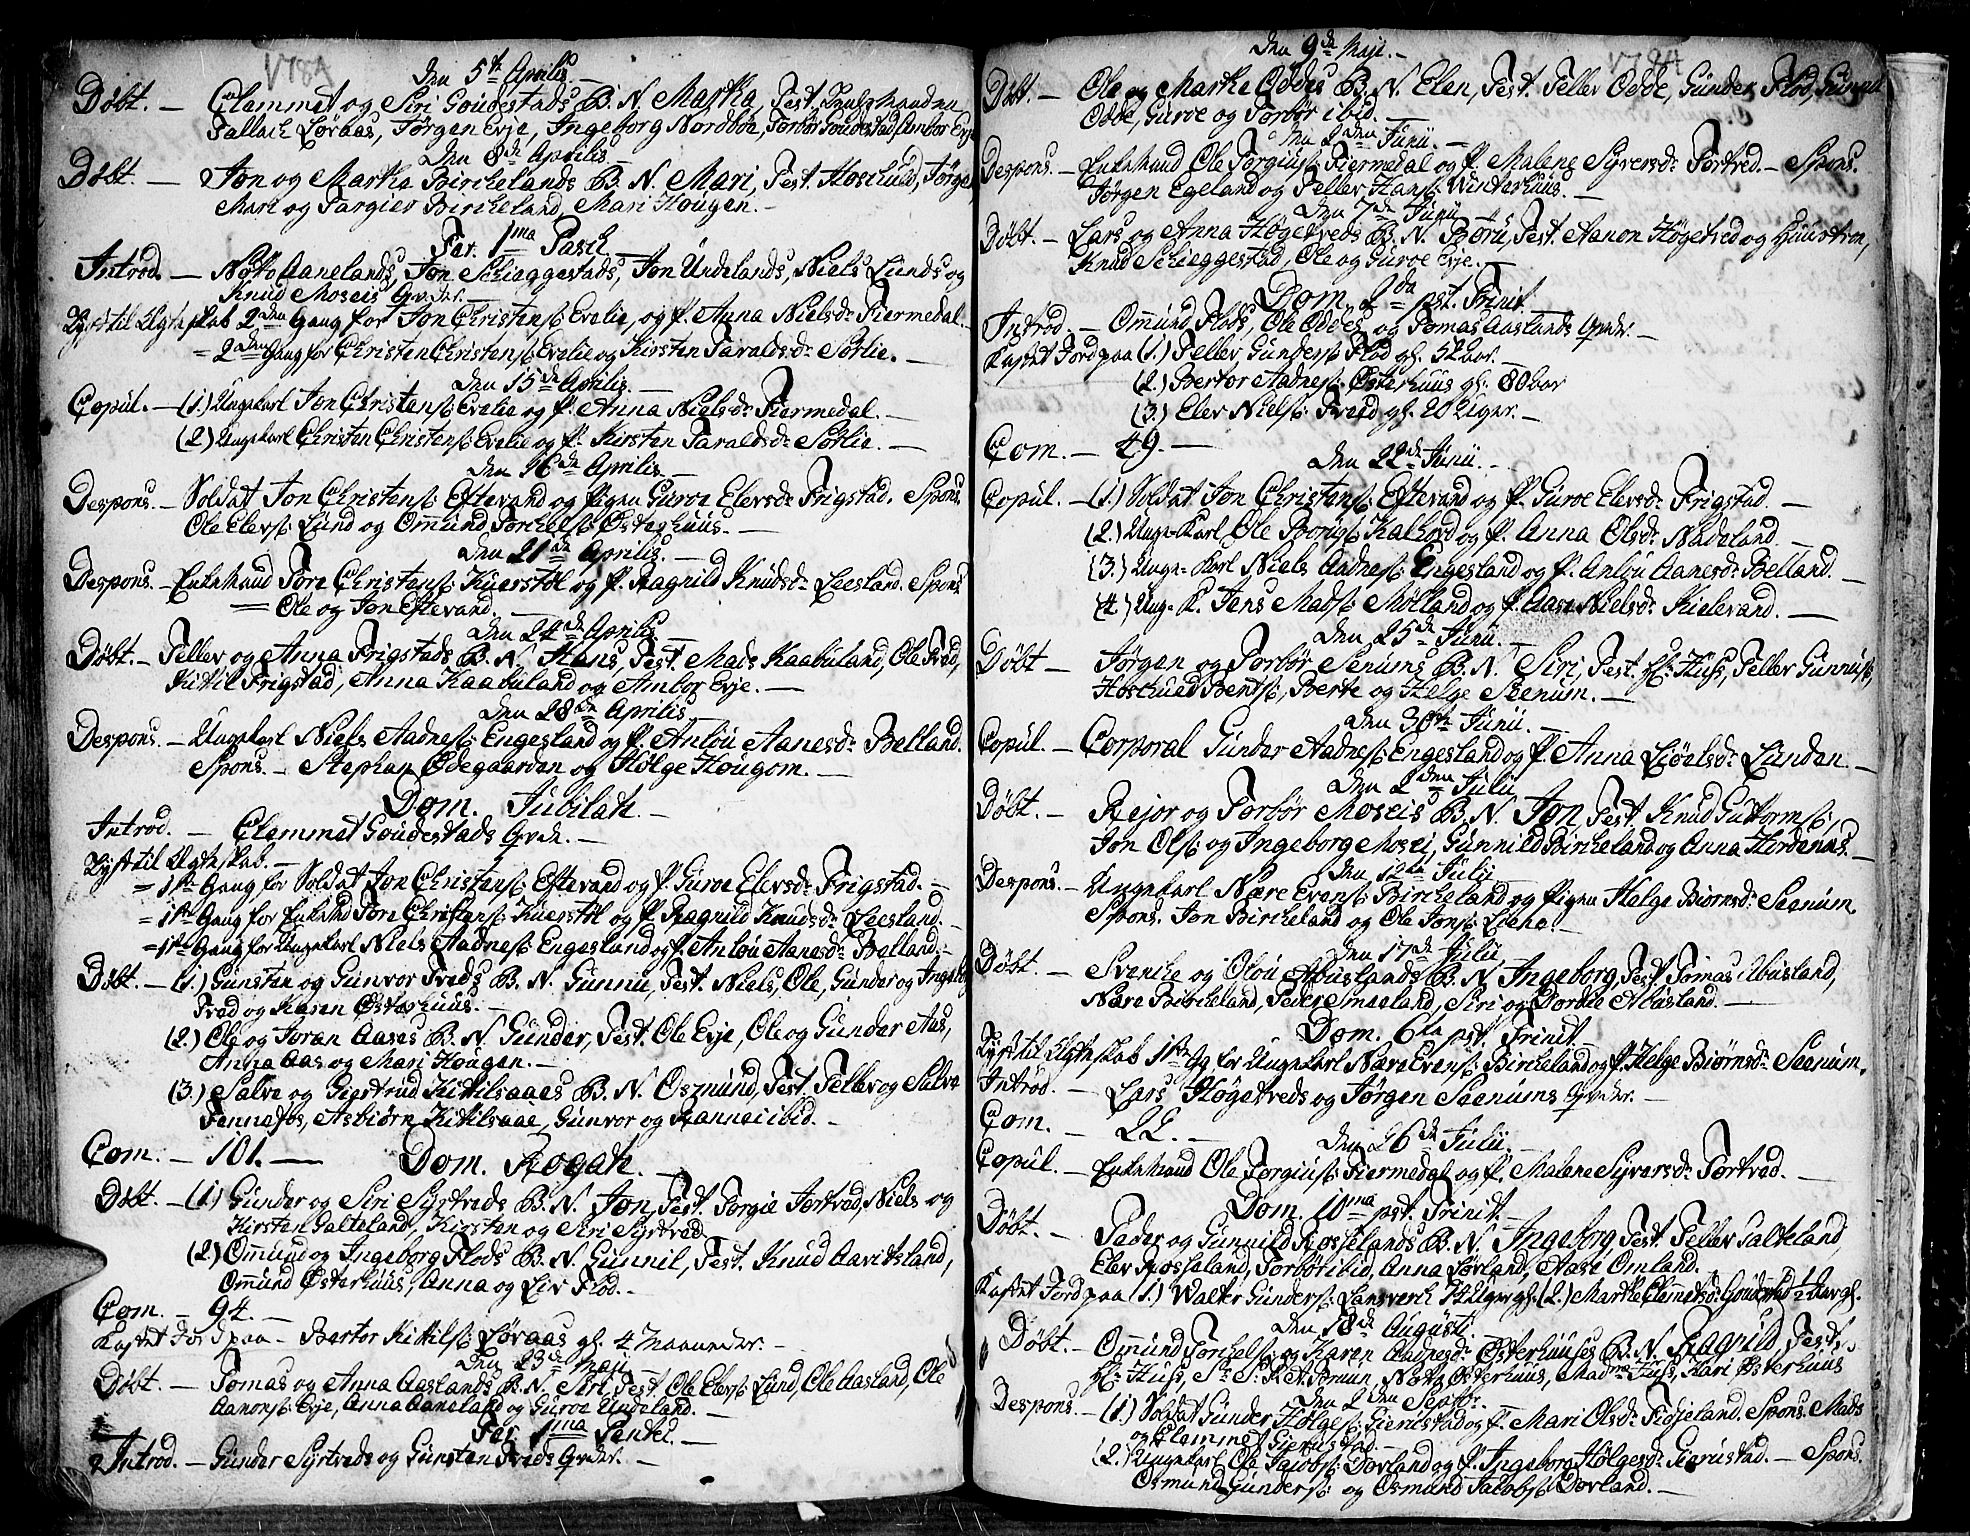 1784
den 5te Aprilis. —
Døbt. — Clemmet og Siri Goudestads B. N. Martha, Test.
Tallach Løraas, Jørgen Evje, Ingeborg Nordbøe, Torbør Goudestad, Ambor Evje
den 8de Aprilis. —
Døbt. — Jon og Martha Birchelands B. N. Mari, Test. Hoschuld, Jørgen
Mari og Targier Bircheland, Mari Hougen. —
Fer. 1ma Pasch.
Introd. — Aanelands, Jon Schieggestads, Jon Undelands, Niels Lunds og
Knud Moseis Qvder. —
Lyst til Ægteskab 2den Gang for Jon Christens: Evelie, og P. Anna Nielsd: Fiermedal. —
= 2den Gang for Christen Christens: Evelie og Kirsten Taraldsd: Sørlie. —
den 15de Aprilis. —
Copul. — (1.) Ungekarl Jon Christens: Evelie og P. Anna Nielsd: Fiermedal. —
(2) Ungekarl Christen Christens: Evelie og P. Kirsten Taraldsd: Sørlie. —
den 16de Aprilis. —
Despons. — Soldat Jon Christens: Eftevand og Pigen Guroe Elevsd: Frigstad. Spons.
Ole Elevs: Lund og Omund Torchels: Østerhuus. —
den 21de Aprilis. —
Despons. — Enkemand Tore Christens: Kuerstøl og P. Ragnild Knudsd: Leesland. Spons.
— Ole og Jon Eftevand. —
den 24de Aprilis. —
Døbt. — Tellev og Anna Frigstads B. N. Hans, Test. Mads Kaabuland, Ole Fred,
Kitil Frigstad, Anna Kaabuland og Ambor Evje. —
den 28de Aprilis —
Despons. — Ungekarl Niels Aadnes: Engesland og P. Anlou Aanesd: Belland.
Spons. — Stephan Ødegaarden og Hølge Hougom. —
Dom. Jubilate. —
Introd. — Clemmet Goudestads Qvde. —
Lyst til Ægteskab. —
= 1ste Gang for Soldat Jon Christens: Eftevand og P. Guroe Elevsd: Frigstad. —
= 1ste Gang for Enkemd Tore Christens: Kuerstøl og P. Ragnild Knudsd: Leesland. —
= 1ste Gang for Ungekarl Niels Aadnes: Engesland og P. Anlou Aanesd: Belland. —
Døbt. — (1.) Gunsten og Gunvor Freds B. N. Gunnu, Test. Niels, Ole, Gunder og Ingeborg
Fred og Karen Østerhuus. —
(2.) Ole og Joran Aases B. N. Gunder, Test. Ole Evje, Ole og Gunder Aas,
Anna Aas og Mari Hougen. —
(3.) Salve og Giertrud Kitilsaaes B. N. Osmund, Test. Tellev og Salve
Fennefos, Asbiørn Kitilsaae, Gunvor og Hanne ibid. —
Com. — 101. —
Dom. Rogate. —
Døbt. — (1.) Gunder og Siri Syrtveds B. N. Jon, Test. Torgie Tortved, Niels og
Kirsten Galteland, Kirsten og Siri Syrtved.
(2.) Omund og Ingeborg Flods B. N. Gunnil, Test. Knud Aavitsland,
Omund Østerhuus, Anna og Liv Flod. —
Com. — 94. —
Kastet Jord paa — Berthor Kitils: Løraas gl. 4 Maaneder. —
den 23de Maji —
Døbt. — Tomas og Anna Aaslands B. N. Siri, Test. Ole Elevs: Lund, Ole Aasland, Ole
Aanons: Evje, Anna Aaneland og Guroe Undeland. —
Fer. 1ma Pentec. —
Introd. — Gunder Syrtveds og Gunsten Freds Qvder. —
1784
den 9de Maji. —
Døbt. — Ole og Marthe Oddes B. N. Elen, Test. Tellev Odde, Gunder Flod, Gunnil
Odde, Guroe og Torbør ibid. —
den 2den Junii. —
Despons. — Enkemand Ole Torgius: Fiermedal og P. Malene Syversd: Tortved. — Spons.
Jørgen Egeland og Tellev Hans: Winterhuus. —
den 7de Junii —
Døbt. — Lars og Anna Høgetveds B. N. Børu, Test. Aanon Høgetved og Huustroe,
Knud Schieggestad, Ole og Guroe Evje. —
Dom. 2da pst. Trinit.
Introd. — Omund Flods, Ole Oddes og Tomas Aaslands Qvder. —
Kastet Jord paa (1.) Tellev Gunders: Flod gl. 52 aar. —
(2.) Bertor Aadnes: Østerhuus gl. 80 aar
(3.) Elev Niels: Fred gl. 20 Uger. —
Com. — 49. —
den 22de Junii. —
Copul. — (1.) Soldat Jon Christens: Eftevand og P. Guroe Elevsd: Frigstad. —
(2.) Unge-Karl Ole Børus: Kalhovd og P. Anna Olsd: Nadeland. —
(3.) Unge-Karl Niels Aadnes: Engesland og P. Anlou Aanesd: Belland. —
(4.) Ung-K. Jens Mads: Mølland og P. Aase Nielsd: Kielevand. —
den 25de Junii. —
Døbt — Jørgen og Torbør Senums B. N. Siri, Test. Hr. Huss, Tellev Gunnus:,
Hoschuld Bents:, Berte og Helge Seenum. —
den 30te Junii. —
Copul. — Corporal Gunder Aadnes: Engesland og P. Anna Liøvlsd: Lunden. —
den 2den Julii
Døbt. — Rejer og Torbør Moseis B. N. Jon, Test. Knud Guttorms:,
Jon Ols: og Ingeborg Mosei, Gunnild Bircheland og Anna Hordenes. —
den 12te Julii —
Despons. — Ungekarl Nære Evens: Bircheland og Pigen Helge Biørnsd: Seenum.
Spons. Jon Bircheland og Ole Jons: Liehe. —
den 17de Julii
Døbt. — Svenche og Olou Abuslands B. N. Ingeborg, Test. Tomas Abusland,
Nære Bircheland, Peder Smeland, Siri og Bordie Abusland. —
Dom. 6ta pst. Trinit. —
Lyst til Ægteskab 1ste Gg for Ungekarl Nære Evens: Bircheland og P. Helge Biørnsd: Seenum.
Introd. — Lars Høgetveds og Jørgen Seenums Qvder. —
Com. — 22. —
den 26de Julii —
Copul. — Enkemand Ole Torgius: Fiermedal og P. Malene Syversd: Tortved. —
Dom. 10ma pst. Trinit. —
Døbt. — Peder og Gunnild Røsselands B. N. Ingeborg, Test. Tellev Galteland,
Elev Røsseland, Torbør ibid, Anna Lørland, Aase Omland.
Kastet Jord paa (1.) Walter Gunders: Lansverk 14 Uger gl. (2.) Marthe Clemetsd: Goudestad ½ Aar gl.
den 18de Augusti. —
Døbt. — Omund Torchels: og Karen Aadnesd: Østerhuuses B. N. Ragnild, Test.
Hr. Huss, Østerhuus, Madme Huss, Kari Østerhuus
den 2den Septbr. —
Despons. — (1.) Soldat Gunder Hølges: Gierustad og P. Mari Olsd: Fiøseland. Spons. Mads
og Clemmet Gierustad. —
(2.) Ungekarl Ole Jacobs: Dovland og P. Ingeborg Hølgesd: Gierustad. — Spons.
Osmund Gunders: og Osmund Jacobs: Dovland. —